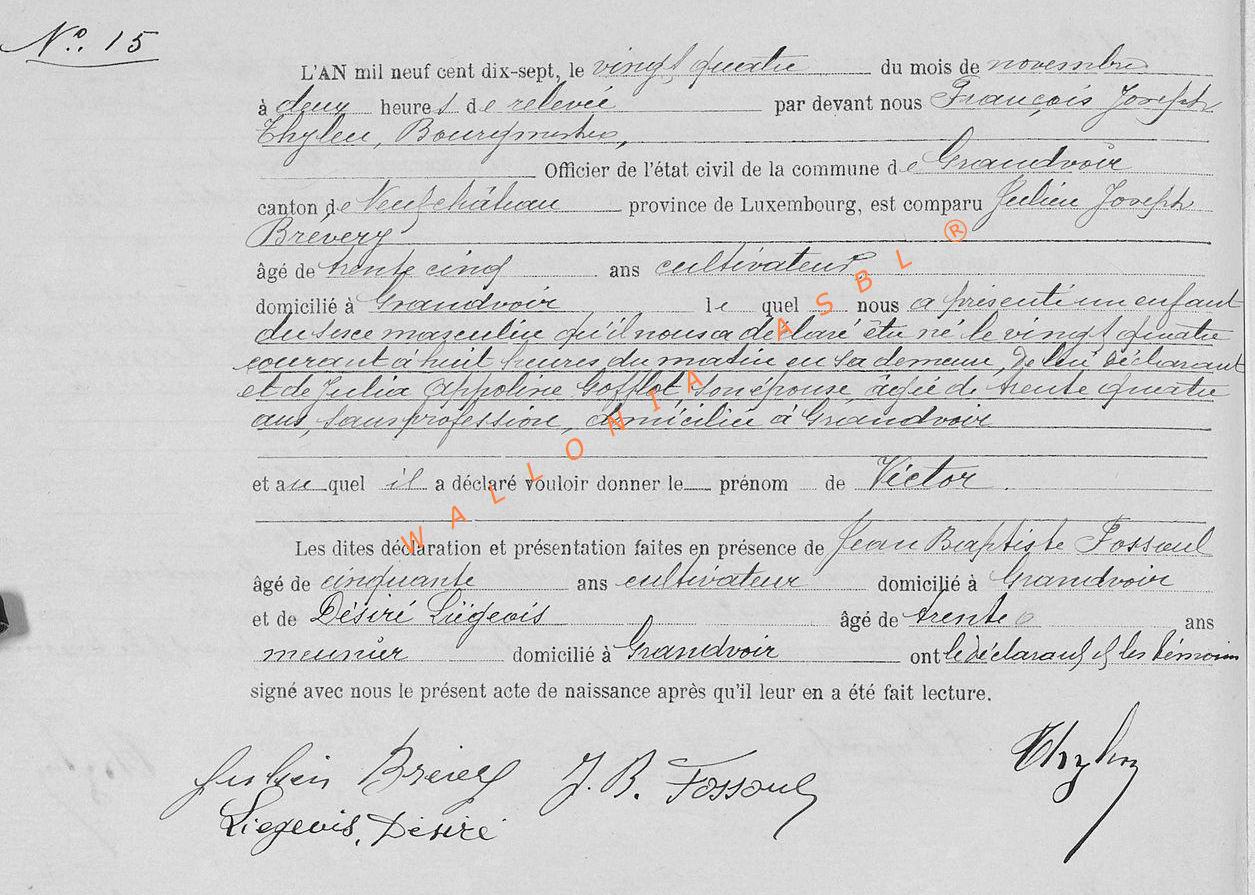 N.o 15
L'AN mil neuf cent dix-sept, le vingt quatre du mois de novembre
à deux heures de relevée par devant nous François Joseph
Thylen, Bourgmestre,
Officier de l'état civil de la commune de Grandvoir
canton de Neufchâteau province de Luxembourg, est comparu Julien Joseph
Brevery
âgé de trente cinq ans cultivateur
domicilié à Grandvoir le quel nous a présenté un enfant
du sexe masculin qu'il nous a déclaré être né le vingt quatre
courant à huit heures du matin en sa demeure, de lui déclarant
et de Julia Appoline Gofflot, son épouse, âgée de trente quatre
ans, sans profession, domiciliée à Grandvoir
et auquel il a déclaré vouloir donner le prénom de Victor.
Les dites déclaration et présentation faites en présence de Jean Baptiste Fossoul
âgé de cinquante ans cultivateur domicilié à Grandvoir
et de Désiré Liégeois âgé de trente ans
meunier domicilié à Grandvoir ont le déclarant et les témoins
signé avec nous le présent acte de naissance après qu'il leur en a été fait lecture.
Julien Brevery J. B. Fossoul Thylen
Liegeois, Désiré
WALLONIA ASBL ®